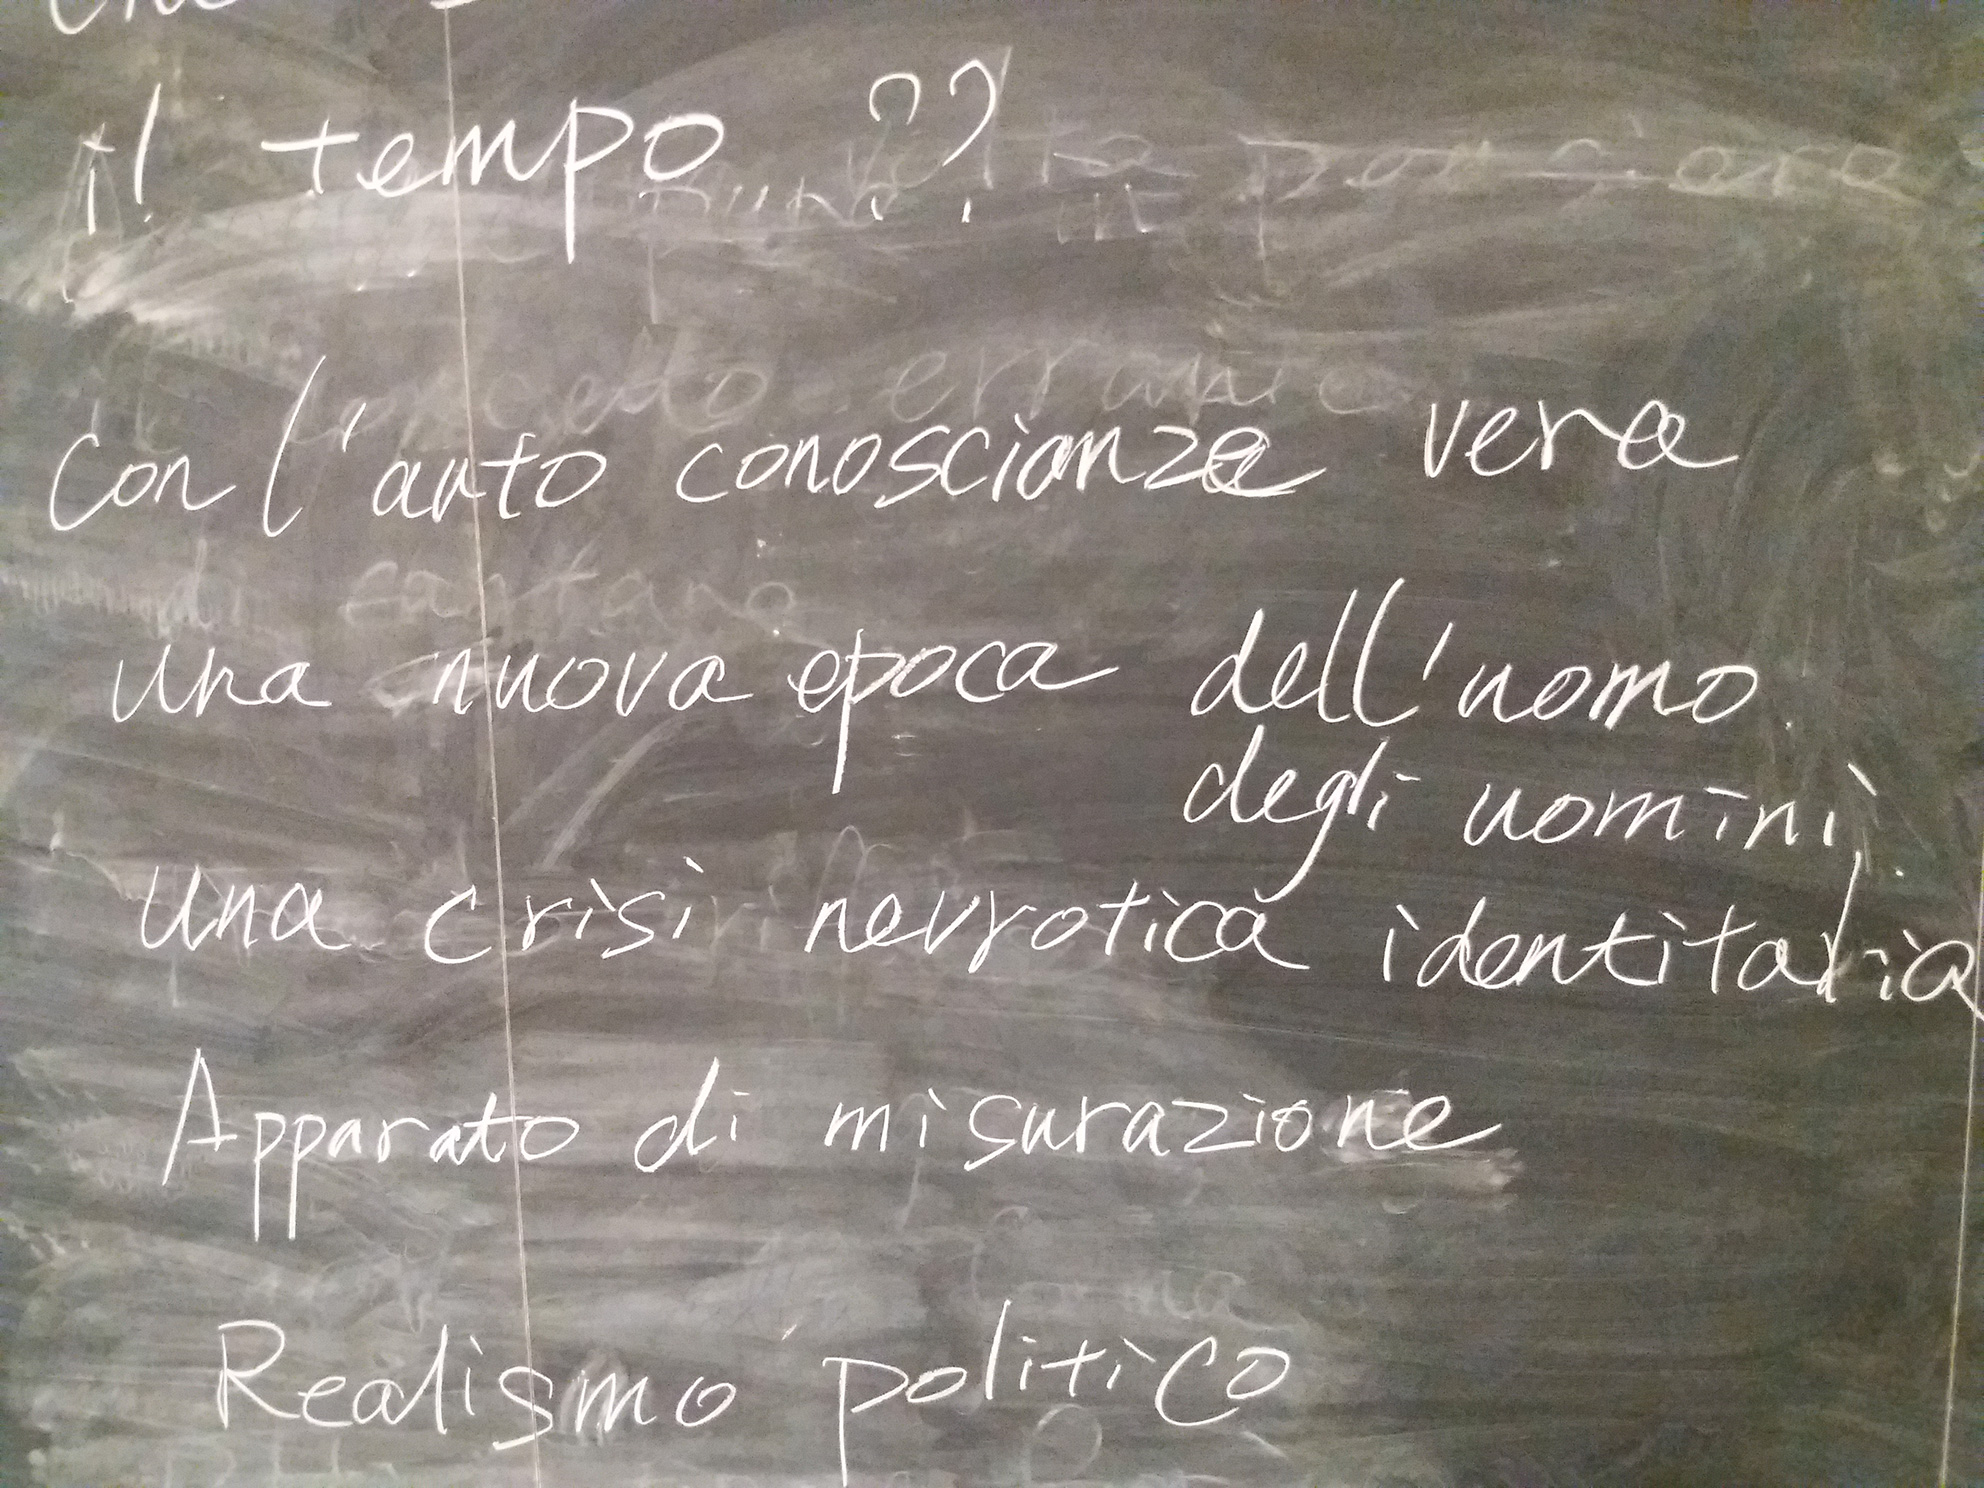 il tempo ??
con l'auto conoscianza vera
una nuova epoca dell'uomo
degli uomini
una crisi nevrotica identitaria
Apparato di misurazione
Realismo politico